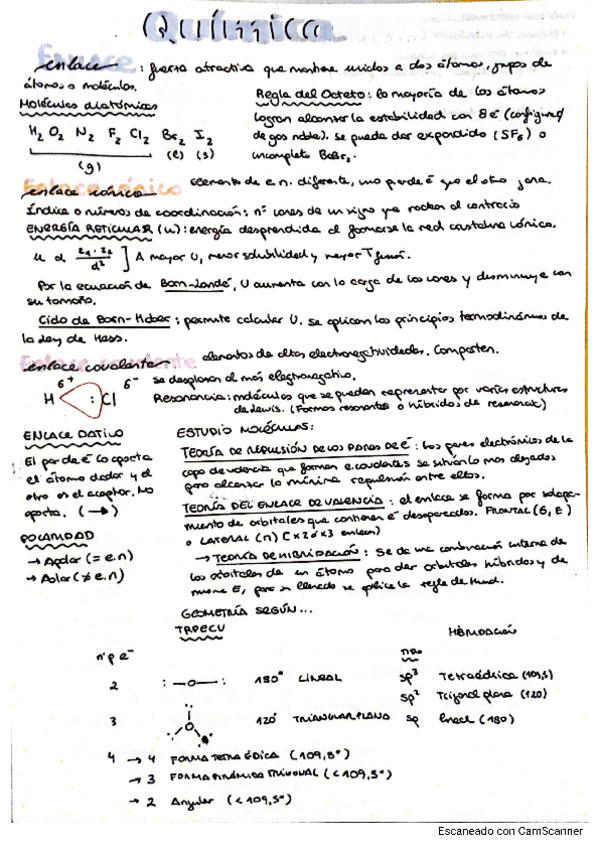 Química
enlace : fuerza atractiva que mantiene unidos a dos átomos, grupos de
átomos o moléculos.
Moléculas diatómicas
Regla del Octeto: la mayoría de los átomos
logran alcanzar la estabilidad con 8 é (configurac
de gas noble). se puede dar expandido (SF₆) o
incompleto
H₂ O₂ N₂ F₂ Cl₂ Br₂ I₂
(g) (l) (s)
enlace iónico elemento de e.n. diferente, uno pierde é que el otro gana.
Índice o número de coordinación: nº iones de un signo que rodean al contrario
ENERGÍA RETICULAR (U): energía desprendida al formarse la red cristalina iónica.
U α z₁·z₂ / d² ] A mayor U, menor solubilidad y mayor T fusión.
Por la ecuación de Born-Landé, U aumenta con la carga de los iones y disminuye con
su tamaño.
Ciclo de Born-Haber: permite calcular U. Se aplican los principios termodinámicos de
la Ley de Hess.
enlace covalente elementos de altas electronegatividades. Comparten.
se desplazan al más electronegativo.
H : Cl
Resonancia: moléculas que se pueden representar por varias estructuras
de Lewis. (Formas resonantes o híbridos de resonancia)
ENLACE DATIVO
El par de é lo aporta
el átomo dador y el
otro es el aceptor. No
aporta. (→)
POLARIDAD
→ Apolar (= e.n)
→ Polar (≠ e.n)
ESTUDIO MOLÉCULAS:
TEORÍA DE REPULSIÓN DE LOS PARES DE é : Los pares electrónicos de la
capa de valencia que forman e.covalentes se sitúan lo más alejados
para alcanzar la mínima repulsión entre ellos.
TEORÍA DEL ENLACE DE VALENCIA : el enlace se forma por solapa-
miento de orbitales que contienen é desapareados. FRONTAL (σ, E)
o LATERAL (π)
→ TEORÍA DE HIBRIDACIÓN : Se da una combinación interna de
los orbitales de un átomo para dar orbitales híbridos y de
misma E, para su llenado se aplica la regla de Hund.
GEOMETRÍA SEGÚN...
TRPECV HIBRIDACIÓN
nºp e⁻
2 :—O—: 180° LINEAL
sp³ Tetraédrica (109,5)
sp² Trigonal plana (120)
3 O 120° TRIANGULAR PLANA sp lineal (180)
4 → 4 FORMA TETRAÉDICA (109,5°)
→ 3 FORMA PIRÁMIDE TRIGONAL (<109,5°)
→ 2 Angular (<109,5°)
Escaneado con CamScanner